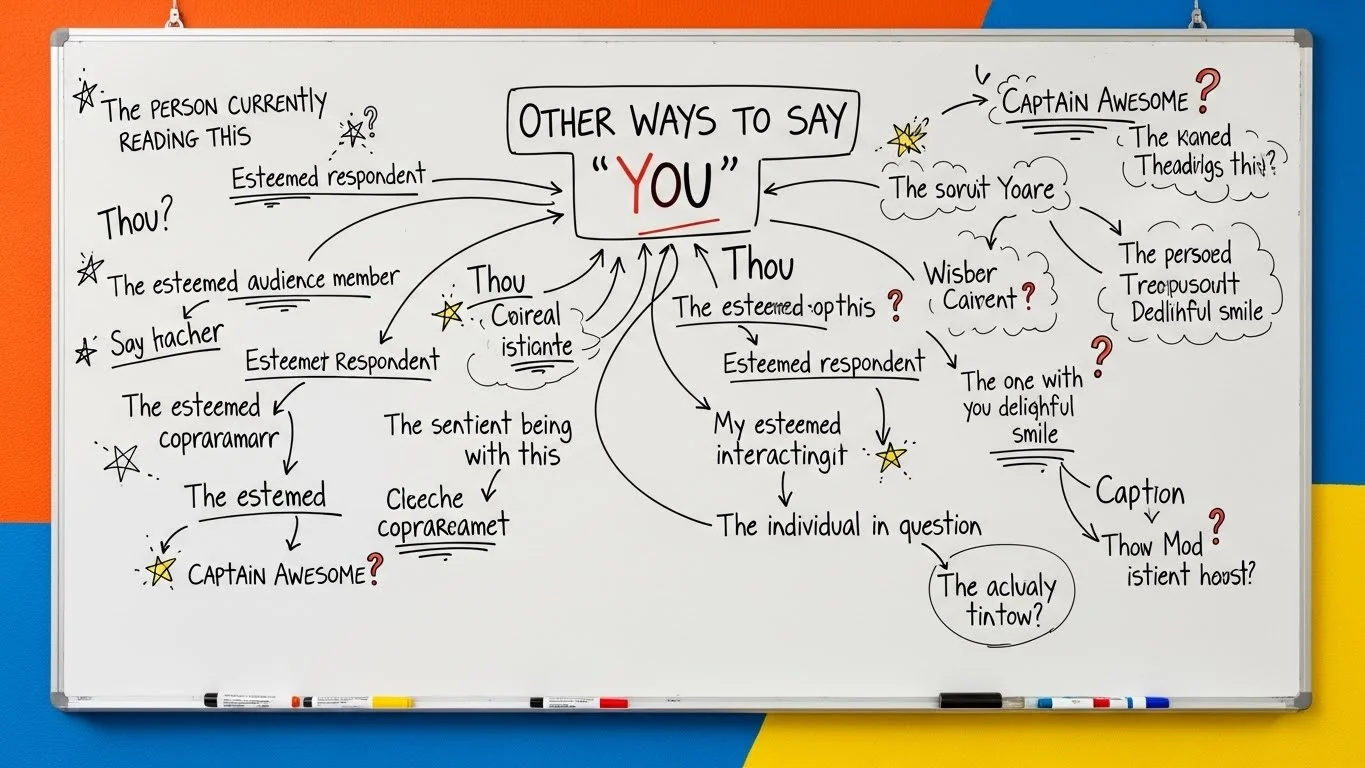 OTHER WAYS TO SAY
"YOU"
The PERSON CURRENTLY
READING THIS
?
Esteemed respondent
Thou?
The esteemed audience member
Say hacher
Esteemet Respondent
The esteemed
copraramarr
The estemed
CAPTAIN AWESOME?
Thou
Coireal
istiante
The sentient being
with this
Cleeche
copraReamet
Thou
The esteemed opthis ?
Esteemed respondent
My esteemed
interactingit
The individual in question
The aclualy
tintow?
CAPTAIN AWESOME ?
The Kaned
Theadilgs this?
The soruit Yoare
Wisber
Cairent?
The persoed
Treopusoult
Dedlihful smile
?
The one with
you delighful
smile
Caption
Thow Mod ?
istient hoost?